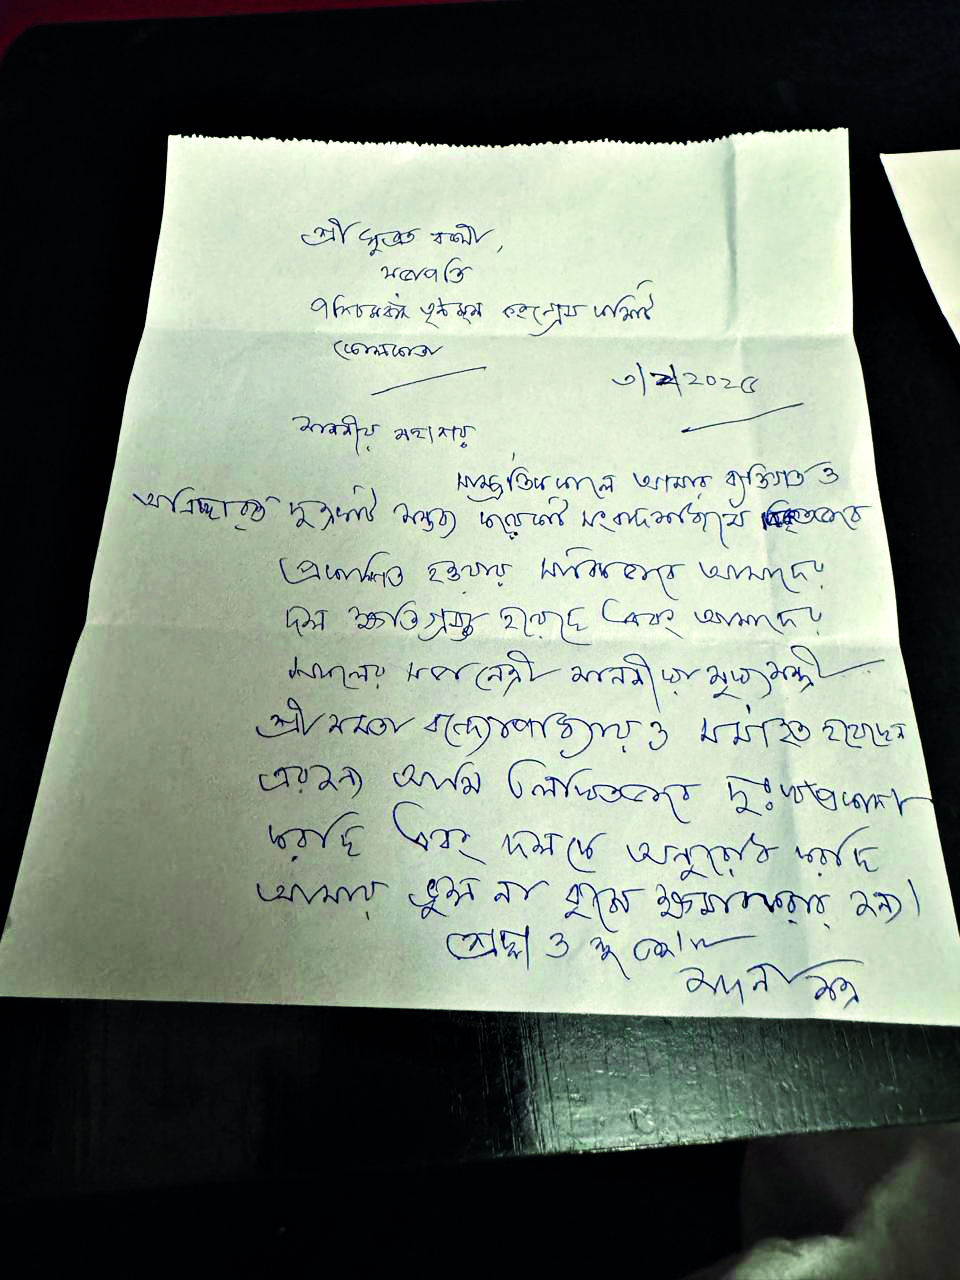 শ্রী সুব্রত বক্সী,
সভাপতি
পশ্চিমবঙ্গ তৃণমূল কংগ্রেস কমিটি
কোলকাতা
৩/২/২০২৫
মাননীয় মহাশয়
সাম্প্রতিককালে আমার ব্যক্তিগত ও
অনিচ্ছাকৃত দু একটি মন্তব্য কয়েকটি সংবাদমাধ্যমে
প্রকাশিত হওয়ার আমাদের
দল ক্ষতিগ্রস্ত হয়েছে এবং আমাদের
দলের সর্বোচ্চ নেত্রী মাননীয়া মুখ্যমন্ত্রী
শ্রী মমতা বন্দ্যোপাধ্যায় ও মর্মাহত হয়েছেন
এরজন্য আমি লিখিতভাবে দুঃখপ্রকাশ
করছি এবং দলকে অনুরোধ করছি
আমায় ভুল না বুঝে ক্ষমা করার জন্য।
শ্রদ্ধা ও
মদন মিত্র